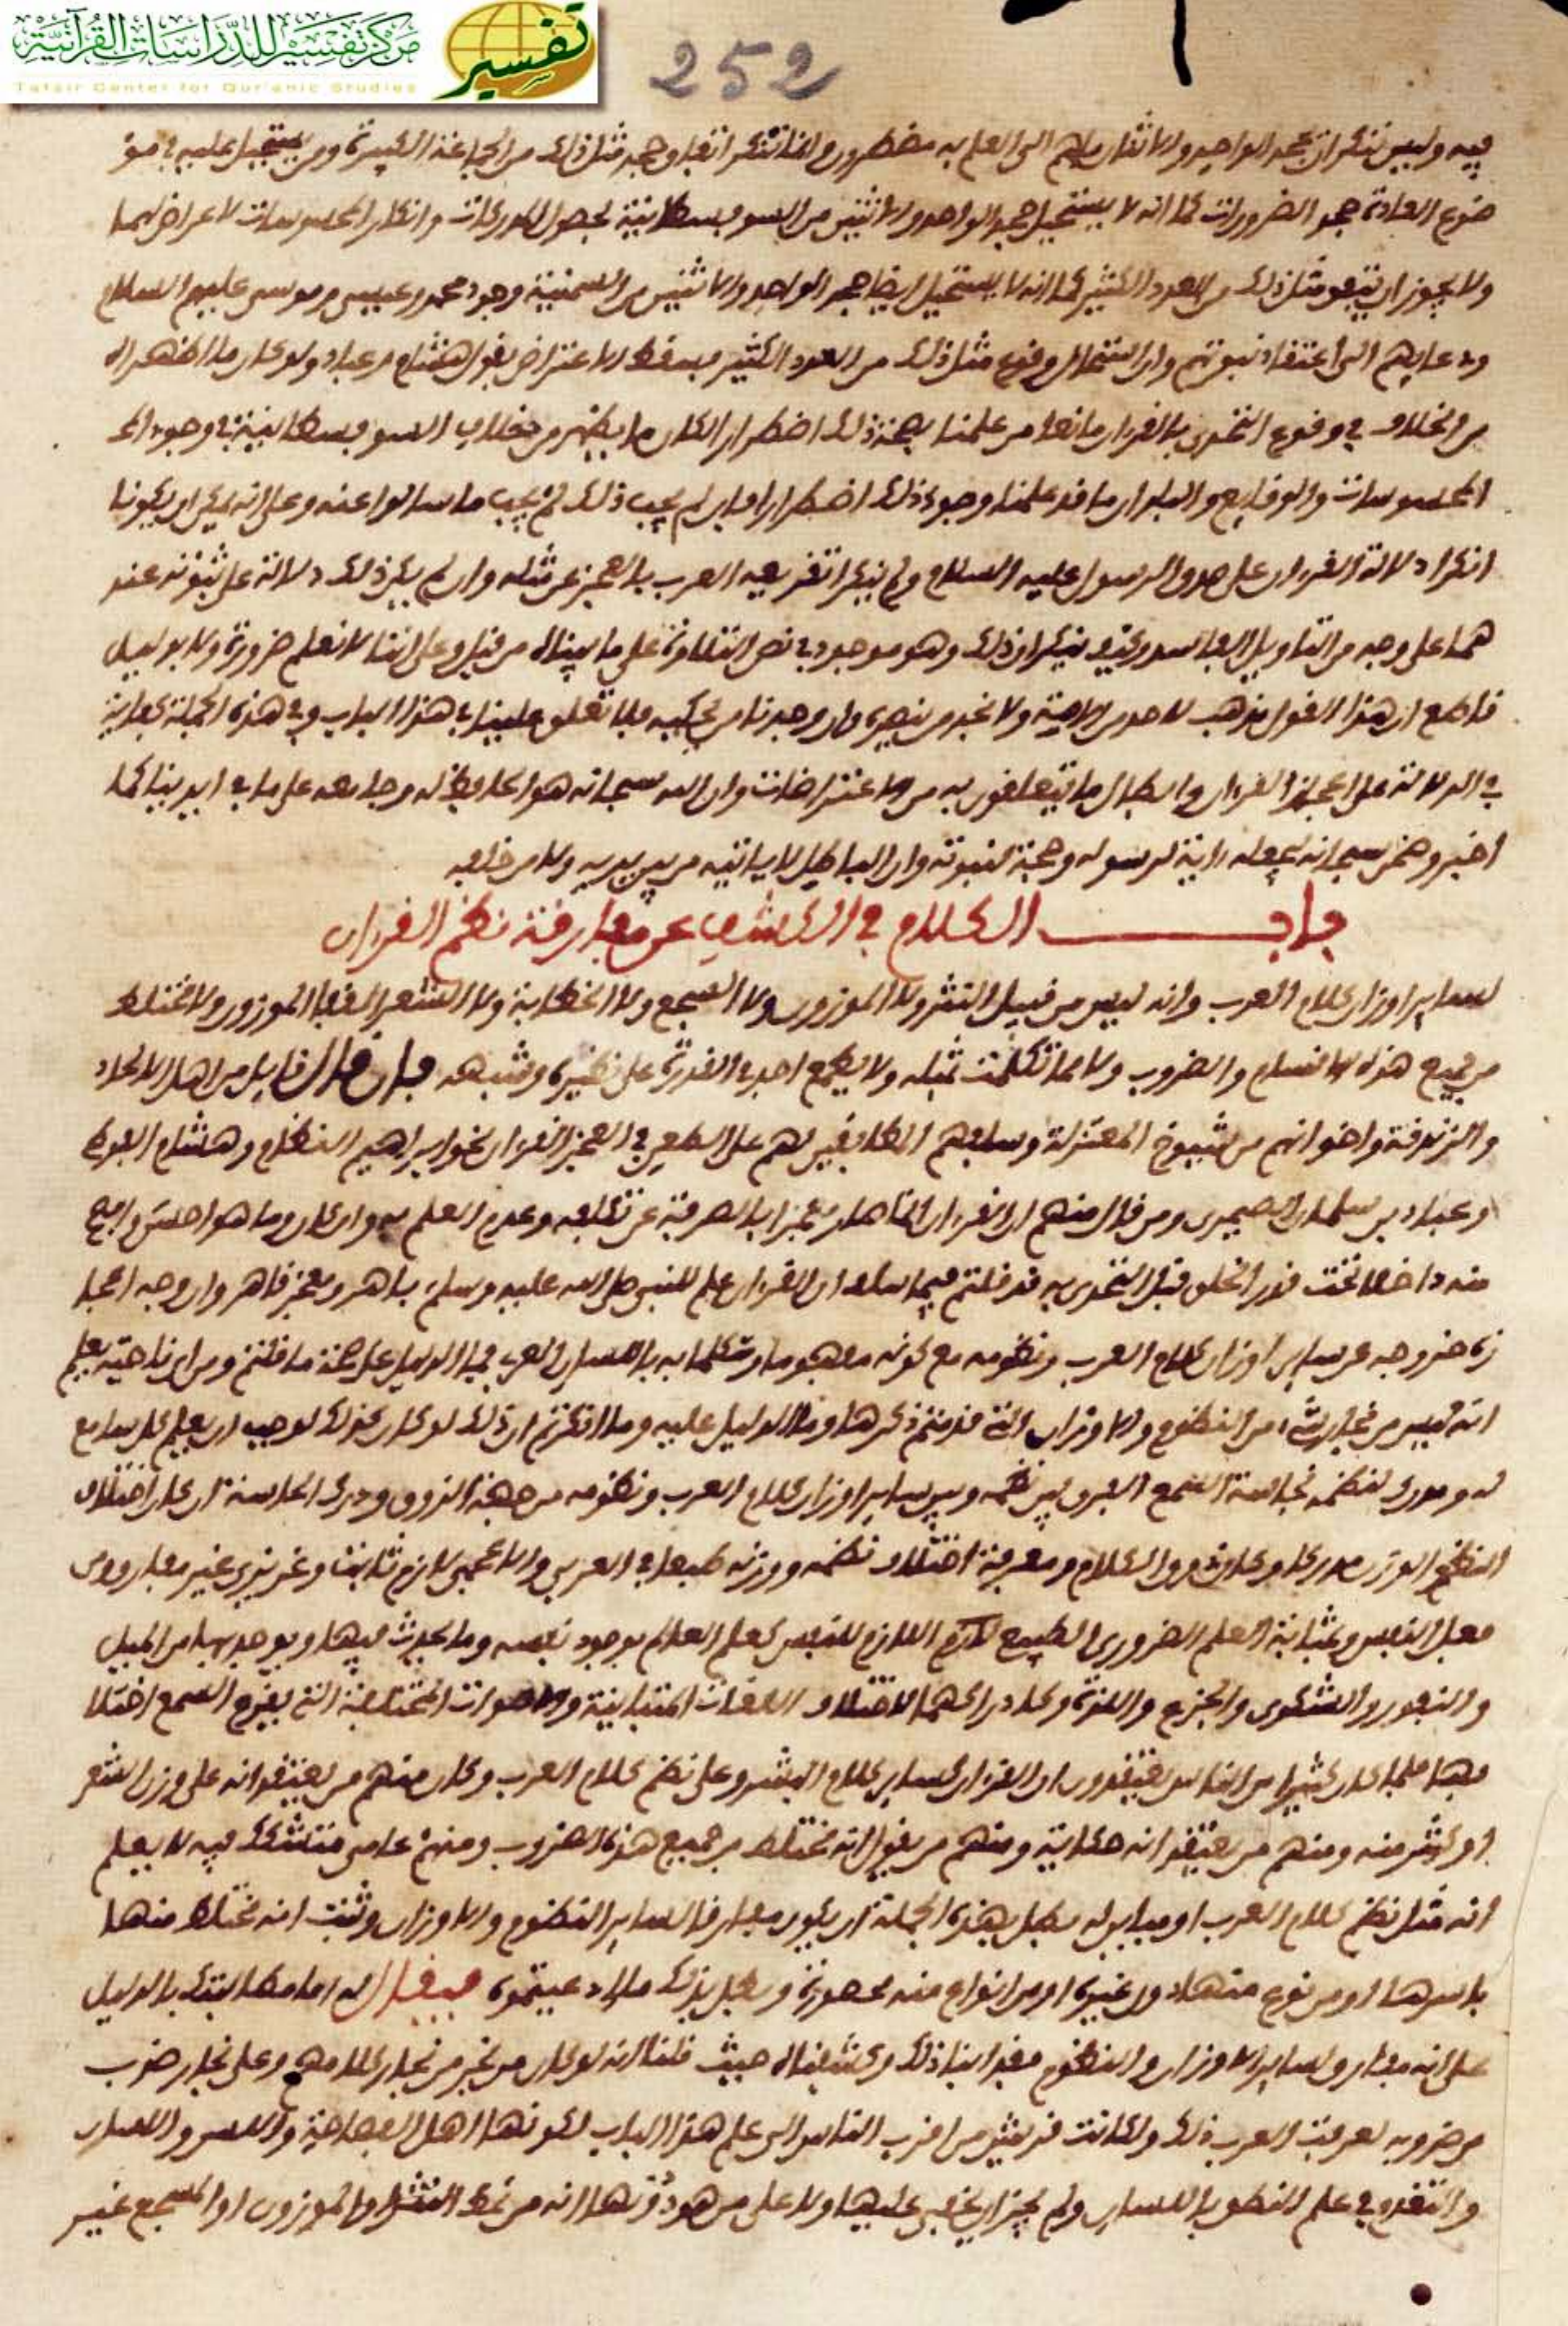 مركز تفسير للدراسات القرآنية
Tafsir Center for Qur'anic Studies
تفسير
252
فيه وليس ننكر ان يجحد الواحد والاثنان ما هم الى العلم به مضطرون وانما ننكر اتفاق جحد مثل ذلك من الجماعة الكثيرة ومن يستحيل عليه في مو
ضوع العادة جحد الضرورات كما انه لا يستحيل جحد الواحد والاثنين من السوفسطائية لجميع المدركات وانكار المحسوسات لاعراض لهما
ولا يجوز ان يتفق مثل ذلك من العدد الكثير كما انه لا يستحيل ايضا جحد الواحد والاثنين من السمنية وجود محمد وعيسى وموسى عليهم السلام
ودعايهم الى اعتقاد نبوتهم وان استحال وقوع مثل ذلك من العدد الكثير فسقط الاعتراض بقول هشام وعباد ولو كان ما اظهراه
من الخلاف في وقوع التحدي بالقران مانعا من علمنا بصحة ذلك اضطرارا لكان ما يظهر من خلاف السوفسطائية في وجود الـ
المحسوسات والوقايع والبلدان مانعا من علمنا وجود ذلك اضطرارا فان لم يجب ذلك لم يجب ما سالوا عنه وعلى انه يمكن ان يكونا
انكرا دلالة القران على صدق الرسول عليه السلام ولم ينكرا تقريعه العرب بالعجز عن مثله وان لم يكن ذلك دلالة على نبوته عند
هما على وجه من التاويل الفاسد وكيف ينكران ذلك وهو موجود في نص التلاوة على ما بيناه من قبل وعلى اننا لا نعلم ضرورة ولا بدليل
قاطع ان هذا القول مذهب لاحد من الامة ولا نجد من ينصره وان وجدنا من يحكيه فلا تعلق علينا في هذا الباب وفي هذه الجملة كفاية
في الدلالة على اعجاز القران وابطال ما يتعلقون به من الاعتراضات وان الله سبحانه هو الحافظ له وجامعه على ما في ايدينا كما
اخبر وضمن سبحانه بجعله اية لرسوله وحجة لنبوته وان الباطل لا ياتيه من بين يديه ولا من خلفه
باب الكلام في الكشف عن مفارقة نظم القران
لساير اوزان كلام العرب وانه ليس من قبيل النثر ولا الموزون ولا السجع ولا الخطابة ولا الشعر المقفا الموزون ولا مختلط
من جميع هذه الاقسام والضروب ولا مما تكلمت بمثله ولا يطمع احد في القدرة على نظيره وشبهه فان قال قايل من اهل الالحاد
والزندقة واخوانهم من شيوخ المعتزلة وسلفهم المطابقين لهم على الطعن في اعجاز القران نحو ابراهيم النظام وهشام الفوطي
وعباد بن سليمان الصيمري ومن قال منهم ان القران انما صار معجزا بالصرفة عن تكلفه وعدم العلم به وان كان وما هو احسن وابدع
منه داخلا تحت قدر الخلق قبل التحدي به قد قلتم فيما سلف ان القران علم للنبي صلى الله عليه وسلم باهر ومعجز قاهر وان وجه اعجا
زه خروجه عن ساير اوزان كلام العرب ونظومه مع كونه مفهوما ومتكلما به باللسان العربي فما الدليل على صحة ما قلتم ومن اي ناحية يعلم
انه ليس من نجار شيء من النظوم والاوزان التي قدمتم ذكرها وما الدليل عليه وما انكرتم ان ذلك لو كان كذلك لوجب ان يعلم كل سامع
له ومدرك لنظمه بحاسة السمع الفرق بين نظمه وبين ساير اوزان كلام العرب ونظومه من جهة الذوق ودرك الحاسة ان كان اختلاف
النظم الوزن مدركا وكان ذوق الكلام ومعرفة اختلاف نظمه ووزنه طبعا في العربي والاعجمي لازم ثابت وغريزي غير مفارق
معل النفس وبمثابة العلم الضروري الطبع اللازم للنفس كعلم العالم بوجود نفسه وما يحدث فيها ويوجد بها من الميل
والنفور والشكوى والجزع واللذة وكادراكهما لاختلاف اللغات المتباينة والاصوات المختلفة التي يقرع السمع اختلا
فها فلما كان كثيرا من الناس يعتقدون ان القران كساير كلام البشر وعلى نظم كلام العرب وكان منهم من يعتقد انه على وزن الشعر
او كثير منه ومنهم من يعتقد انه خطابة ومنهم من يقول انه مختلط من جميع هذه الضروب ومنهم عامي متشكك فيه لا يعلم
انه مثل نظم كلام العرب او مباين له بطل بهذه الجملة ان يكون مفارقا لساير النظوم والاوزان وثبت انه مختلط منها
باسرها او من نوع منها دون غيره او من انواع منه محصورة وبطل بذلك ما ادعيتموه فيقال له اما مطالبتك بالدليل
على انه مفارق لساير الاوزان والنظوم فقد ابنا ذلك وكشفناه حيث قلنا انه لو كان من نجر من نجار كلامهم وعلى نجار ضرب
من ضروبه لعرفت العرب ذلك ولكانت قريش من اقرب الناس الى علم هذا الباب لكونها اهل الفصاحة واللسن واللسان
والتقدم في علم النطق باللسان ولم يجز ان يخفى عليها ولا على من هو دونها انه من نمط النثر او الموزون او المسجع غير